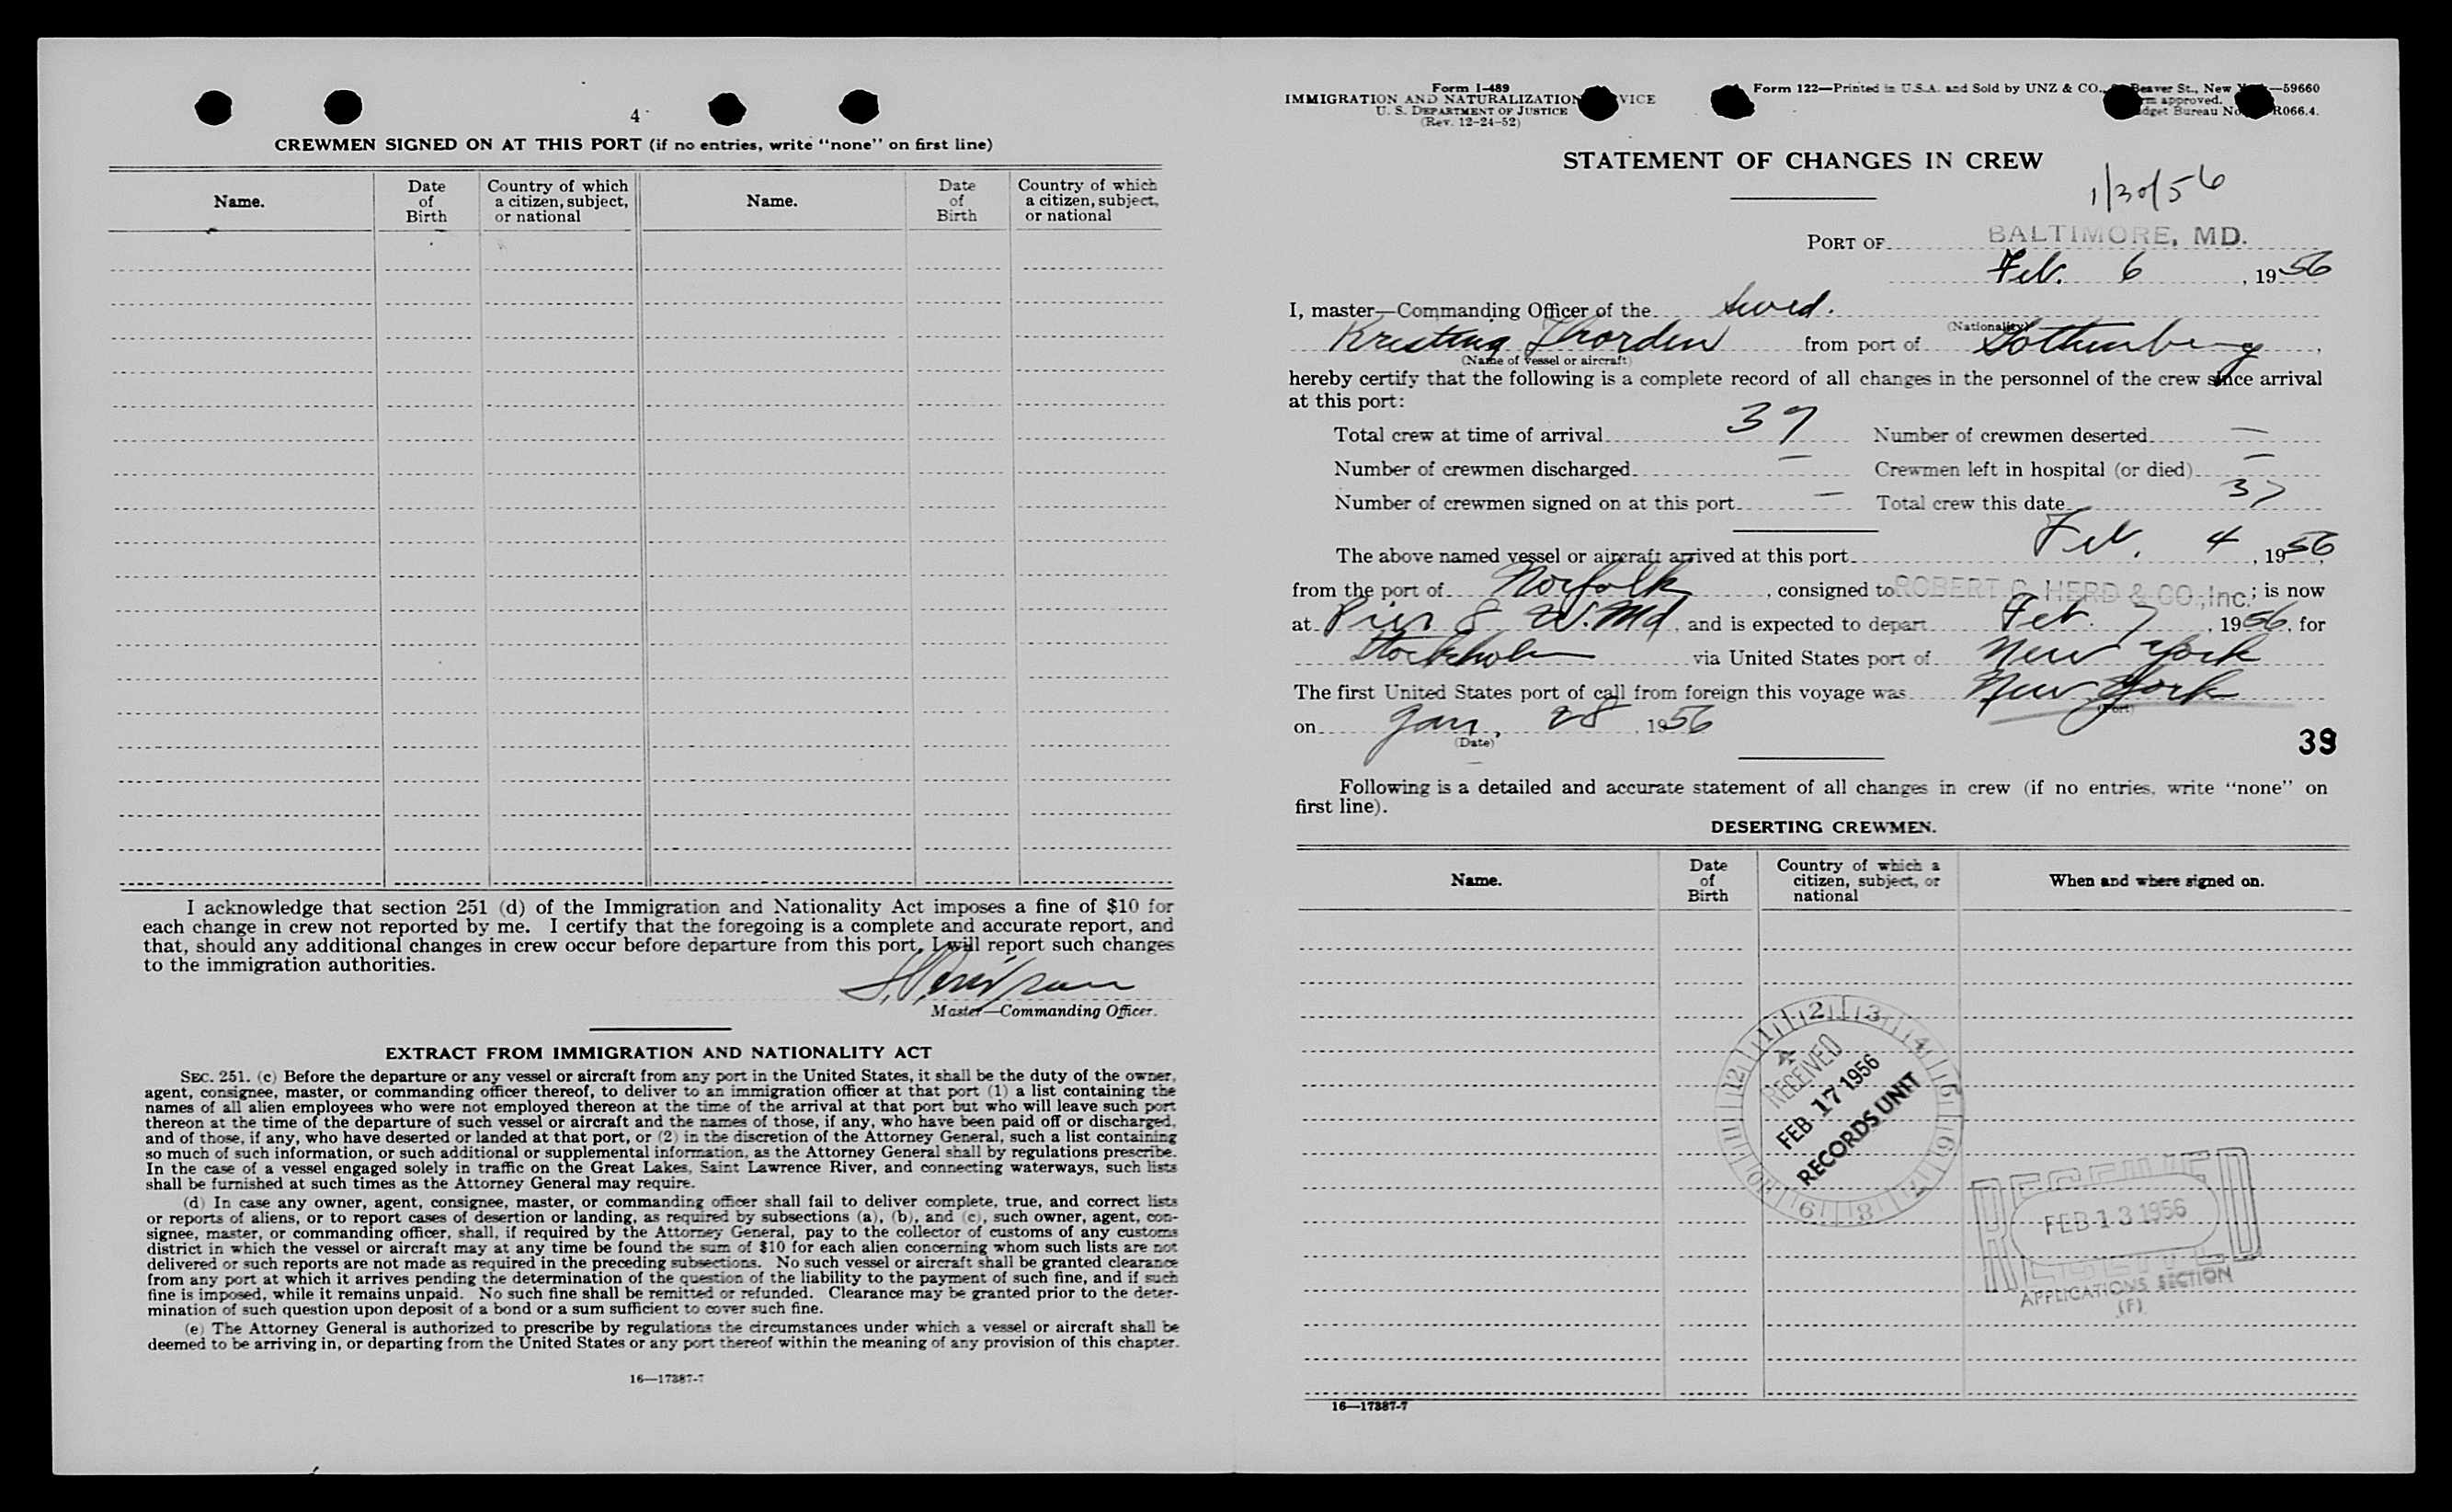 4
CREWMEN SIGNED ON AT THIS PORT (if no entries, write "none" on first line)
Name.
Date
of
Birth
Country of which
a citizen, subject,
or national
Name.
Date
of
Birth
Country of which
a citizen, subject,
or national
I acknowledge that section 251 (d) of the Immigration and Nationality Act imposes a fine of $10 for
each change in crew not reported by me. I certify that the foregoing is a complete and accurate report, and
that, should any additional changes in crew occur before departure from this port, I will report such changes
to the immigration authorities.
Master—Commanding Officer.
EXTRACT FROM IMMIGRATION AND NATIONALITY ACT
SEC. 251. (c) Before the departure or any vessel or aircraft from any port in the United States, it shall be the duty of the owner,
agent, consignee, master, or commanding officer thereof, to deliver to an immigration officer at that port (1) a list containing the
names of all alien employees who were not employed thereon at the time of the arrival at that port but who will leave such port
thereon at the time of the departure of such vessel or aircraft and the names of those, if any, who have been paid off or discharged,
and of those, if any, who have deserted or landed at that port, or (2) in the discretion of the Attorney General, such a list containing
so much of such information, or such additional or supplemental information, as the Attorney General shall by regulations prescribe.
In the case of a vessel engaged solely in traffic on the Great Lakes, Saint Lawrence River, and connecting waterways, such lists
shall be furnished at such times as the Attorney General may require.
(d) In case any owner, agent, consignee, master, or commanding officer shall fail to deliver complete, true, and correct lists
or reports of aliens, or to report cases of desertion or landing, as required by subsections (a), (b), and (c), such owner, agent, con-
signee, master, or commanding officer, shall, if required by the Attorney General, pay to the collector of customs of any customs
district in which the vessel or aircraft may at any time be found the sum of $10 for each alien concerning whom such lists are not
delivered or such reports are not made as required in the preceding subsections. No such vessel or aircraft shall be granted clearance
from any port at which it arrives pending the determination of the question of the liability to the payment of such fine, and if such
fine is imposed, while it remains unpaid. No such fine shall be remitted or refunded. Clearance may be granted prior to the deter-
mination of such question upon deposit of a bond or a sum sufficient to cover such fine.
(e) The Attorney General is authorized to prescribe by regulations the circumstances under which a vessel or aircraft shall be
deemed to be arriving in, or departing from the United States or any port thereof within the meaning of any provision of this chapter.
16—17387-7
Form I-489
IMMIGRATION AND NATURALIZATION VICE
U. S. DEPARTMENT OF JUSTICE
(Rev. 12-24-52)
Form 122—Printed in U.S.A. and Sold by UNZ & CO., Beaver St., New —59660
approved.
Bureau No. R066.4.
STATEMENT OF CHANGES IN CREW
1/30/56
PORT OF BALTIMORE, MD.
Feb. 6, 1956
I, master—Commanding Officer of the Swed.
(Nationality)
Kristina Thorden from port of Gothenberg,
(Name of vessel or aircraft)
hereby certify that the following is a complete record of all changes in the personnel of the crew since arrival
at this port:
Total crew at time of arrival 37 Number of crewmen deserted —
Number of crewmen discharged — Crewmen left in hospital (or died) —
Number of crewmen signed on at this port — Total crew this date 37
The above named vessel or aircraft arrived at this port Feb. 4, 1956,
from the port of Norfolk, consigned to ROBERT C. HERD & CO., Inc.; is now
at Pier 8 W. Md, and is expected to depart Feb. 7, 1956, for
Stockholm via United States port of New York
The first United States port of call from foreign this voyage was New York
(Port)
on Jan. 28, 1956
(Date)
39
Following is a detailed and accurate statement of all changes in crew (if no entries, write "none" on
first line).
DESERTING CREWMEN.
Name.
Date
of
Birth
Country of which a
citizen, subject, or
national
When and where signed on.
12 1 2 3 4 5 6 7 8 9 10 11
RECEIVED
FEB 17 1956
RECORDS UNIT
RECEIVED
FEB 13 1956
APPLICATIONS SECTION
(F)
16—17387-7